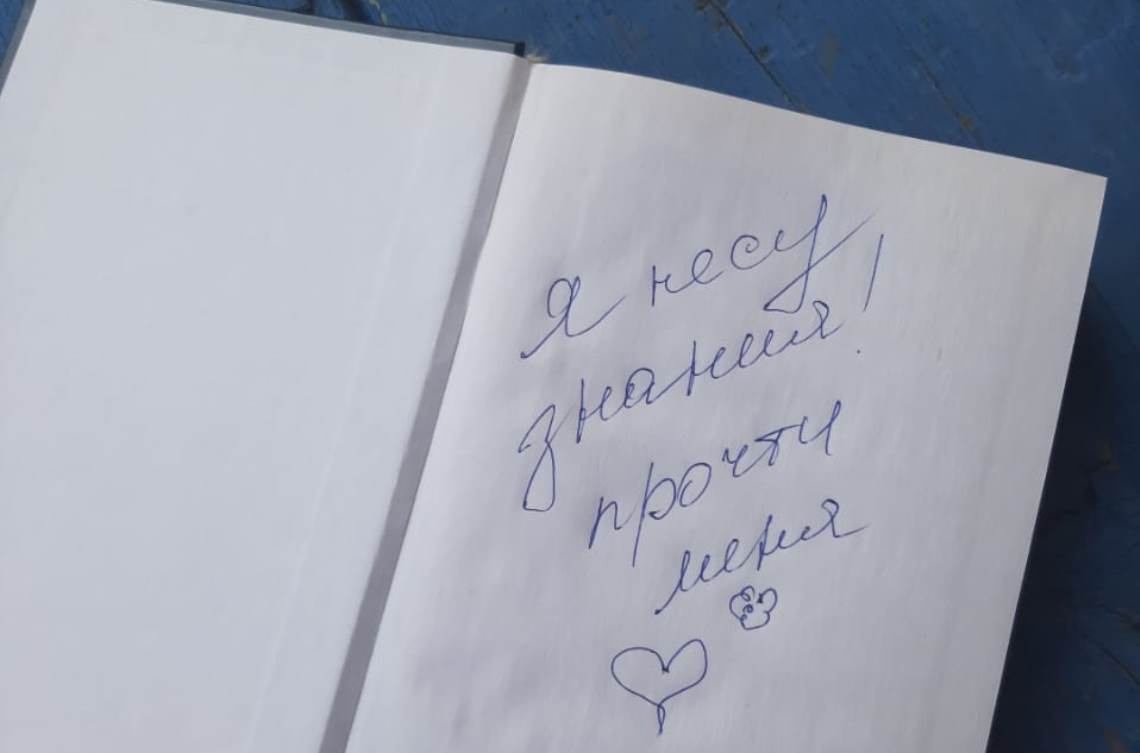 я несу
знания!
прочти
меня